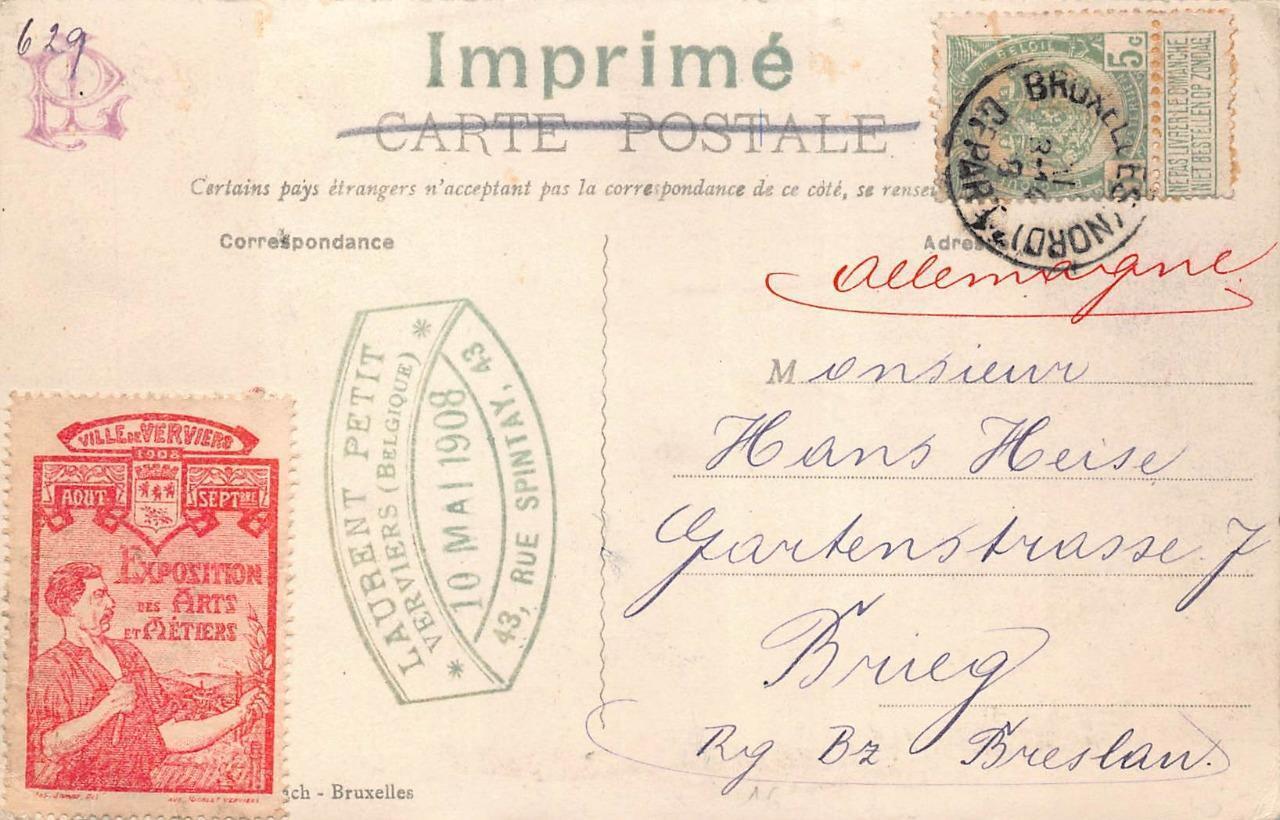 629
Imprimé
CARTE POSTALE
Certains pays étrangers n'acceptant pas la correspondance de ce côté, se rensei
Correspondance
Adres
BELGIE
5 C
NE PAS LIVRER LE DIMANCHE
NIET BESTELLEN OP ZONDAG
BRUXELLES (NORD)
DEPART
Allemagne
Monsieur
Hans Heise
Gartenstrasse 7
Brieg
Rg Bz Breslau.
LAURENT PETIT
VERVIERS (BELGIQUE)
10 MAI 1908
43, RUE SPINTAY, 43
VILLE DE VERVIERS
1908
AOUT SEPTBRE
EXPOSITION
DES ARTS
ET MÉTIERS
ch - Bruxelles